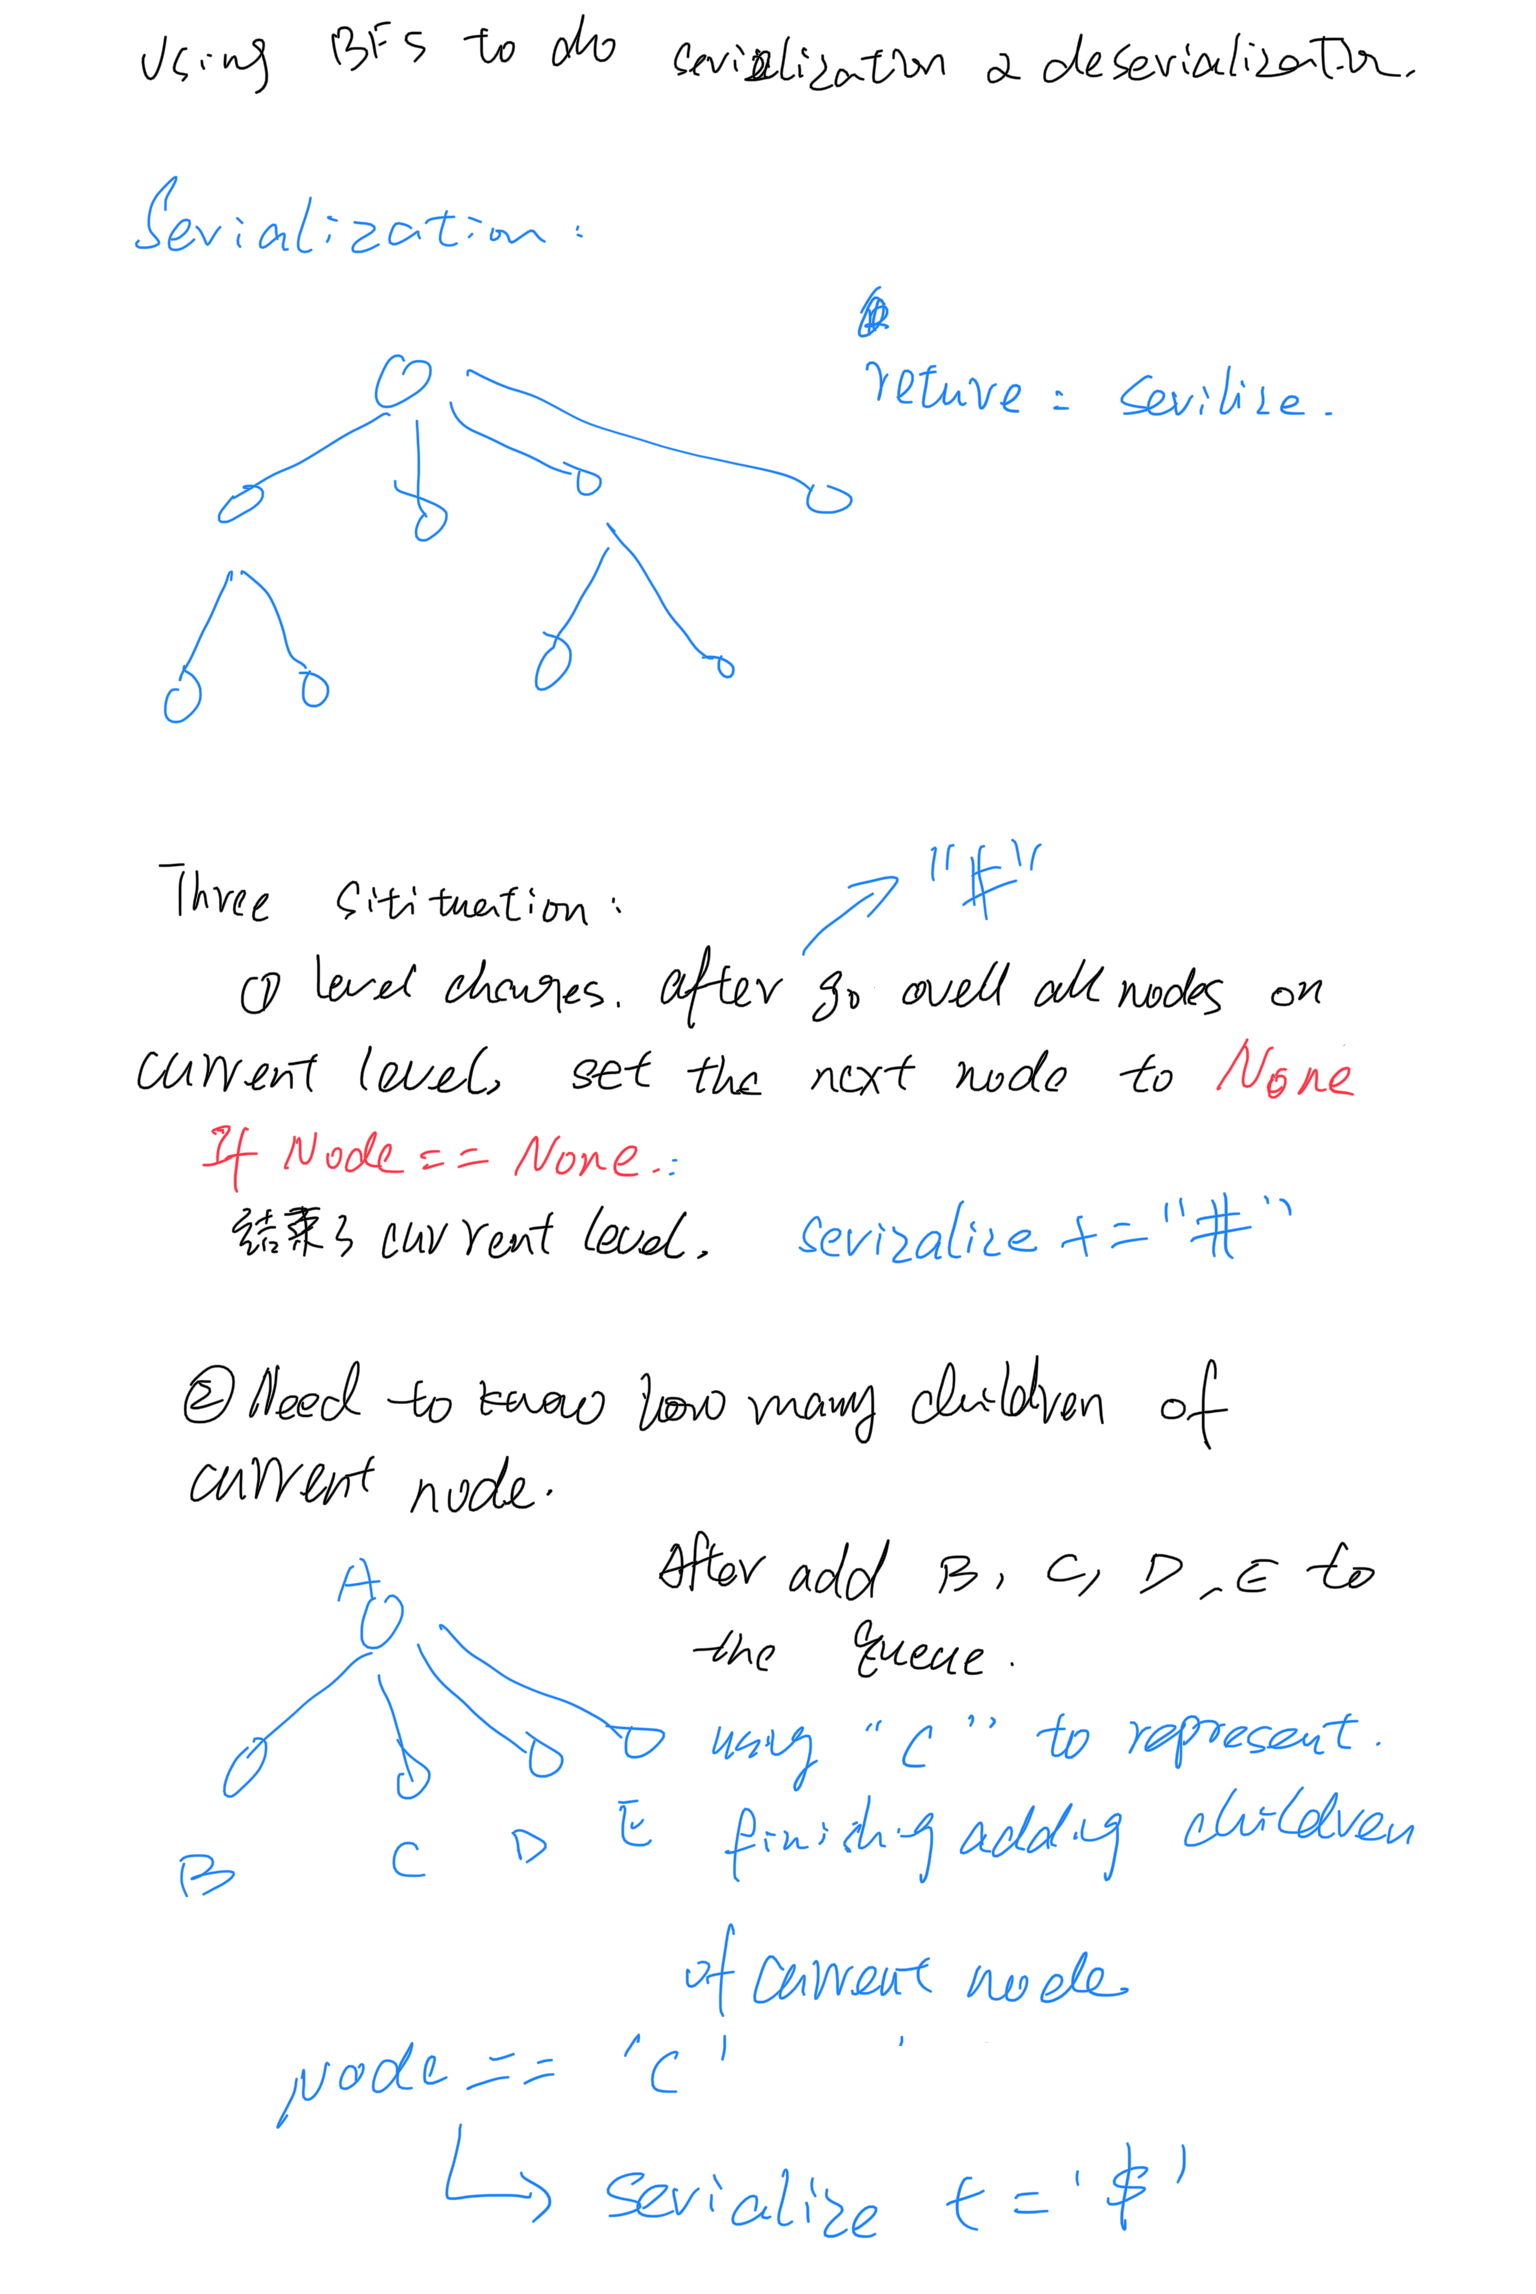 Using BFS to do serialization & deserialization.
Serialization:
return = serilize.
Three Sitituation:
"#"
① level changes. after go overll all nodes on
current level, set the next node to None
If Node == None.:
结束了 current level. serizalize += "#"
② Need to know how many children of
current node.
A
After add B, C, D, E to
the queue.
using "C" to represent.
B C D E
finishing adding children
of current node
Node == 'C'
serialize += '$'